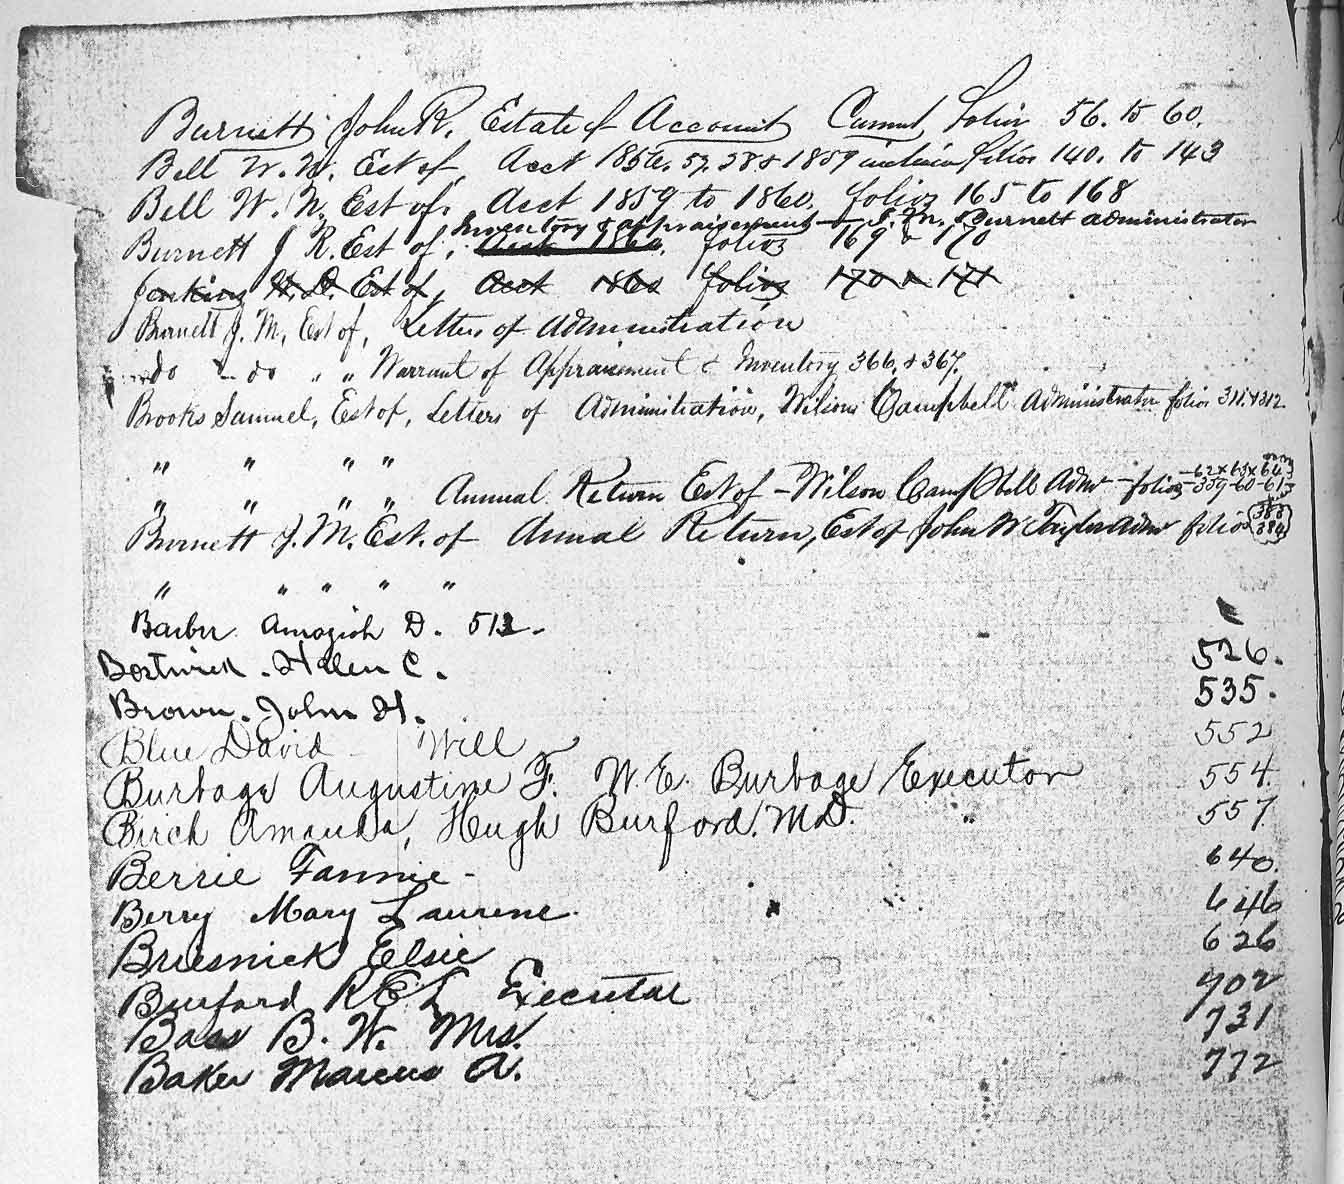 Burnett John R. Estate of Account Current, folios 56. to 60.
Bell W. N. Est of, Acct 1856. 57. 58 & 1859 inclusive folios 140. to 143
Bell W. N. Est of. Acct 1859 to 1860, folios 165 to 168
Inventory & appraisement J. M. Burnett administrator
Burnett J R. Est of. Acct 1860, folios 169 & 170
Jenkins H. D. Est of, Acct 1860 folios 170 & 171
Burnett J. M, Est of, Letters of Administration
do - do " " Warrant of Appraisement & Inventory 366, & 367.
Brooks Samuel, Est of, Letters of Administration, Wilson Campbell Administrator folios 311. & 312
" " " "
-62 x 63 x 64
" " " " Annual Return Est of - Wilson Campbell Admr - folios -359-60-61
Burnett J. M. Est. of Annual Return, Est of John W Admr folios 383 384
" " " " "
Barber Amaziah D. 512.
Bostwick. Helen C. 526.
Brown. John H. 535.
Blue David - Will 552
Burbage Augustine F. W. E. Burbage Executor 554
Birch Amanda, Hugh Burford. M.D. " 557
Berrie Fannie - 640.
Berry Mary Laurene. 646
Briesnick Elsie 626
Burford R E L Executor 702
Bass B. W. Mrs. 731
Baker Marcus A. 772